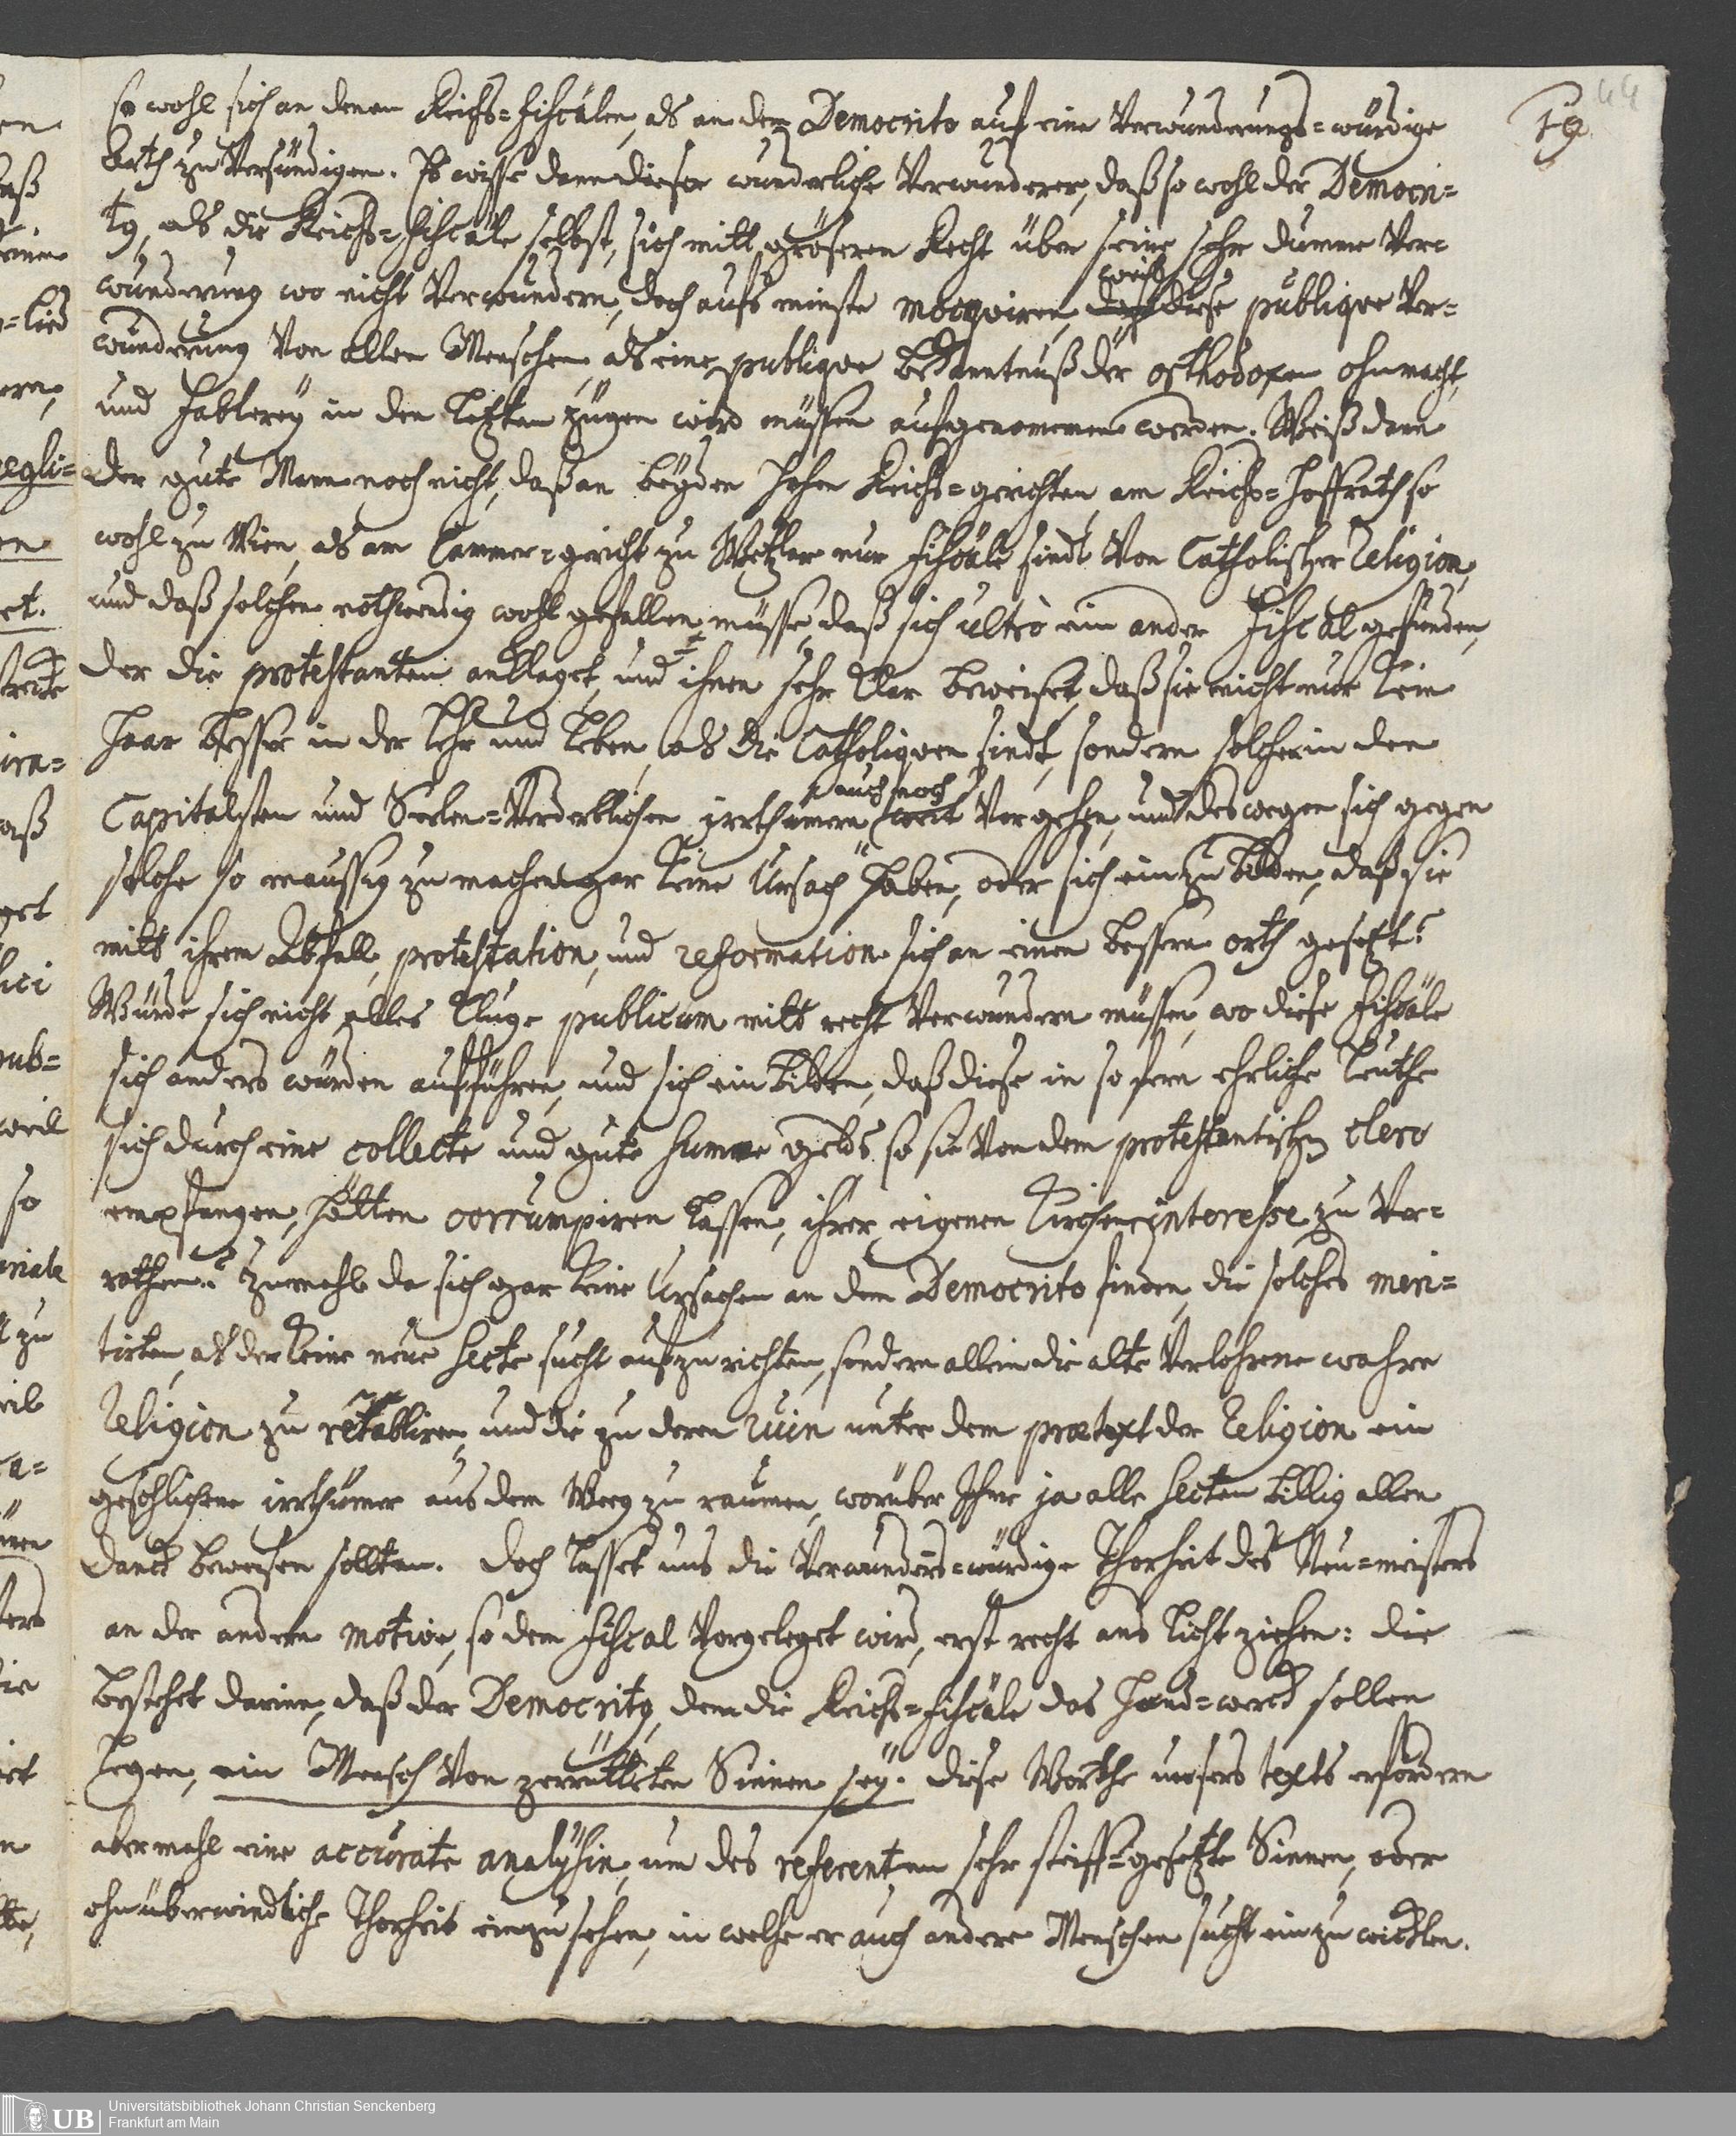 44
19.
so wohl sich an denen Reichs-Fiscälen, als an dem Democrito auf eine verwunderungs-würdige
arth zu versündigen. Es wisse dann dieser wunderliche verwunderer, daß so wohl der Democri-
tus, als die Reichs-Fiscäle selbst, sich mitt gröserem Recht über seine sehr dumme ver-
wunderung wo nicht verwundern, doch aufs minste mocqviren, weil diese publiqve ver-
wunderung von allen Menschen, als eine publiqve bekantnuß der orthodoxen ohnmacht,
und Fablerey in den letzten zügen wird müssen aufgenommen werden. Weiß dann
der gute Mann noch nicht, daß an beyden hohen Reichs-gerichten, am Reichs-Hoffrath so
wohl zu Wien, als am Cammer-gericht zu Wetzlar nur Fiscäle sindt von Catholischer Religion,
und daß solchen nothwendig wohl gefallen müsse, daß sich ultrò ein ander Fiscal gefunden,
der die protestanten anklaget, und ihnen sehr klar beweiset, daß sie nicht nur kein
Haar besser in der Lehr und Leben, als die Catholiqven sindt, sondern solchen in den
auch noch
Capitalsten und Seelen-verderblichen irrthümern weit vorgehen, und deswegen sich gegen
solche so maussig zu machen gar keine Ursach haben, oder sich einzubilden, daß sie
mitt ihrem Abfall, protestation, und reformation sich an einen bessern orth gesetzt?
Würde sich nicht alles kluge publicum mitt recht verwundern müssen, wo diese Fiscäle
sich anders würden aufführen, und sich einbilden, daß diese in so fern ehrliche Leuthe
sich durch eine collecte und gute summe gelds, so sie von dem protestantischen clero
empfangen, hätten corrumpiren lassen, ihrer eigenen Kirchen interesse zu ver-
rathen? zumahl da sich gar keine Ursachen an dem Democrito finden, die solches meri-
tirten, als der keine neue Secte sucht aufzurichten, sondern allein die alte verlohrene wahre
Religion zu retabliren, und die zu deren ruin unter dem prætext der Religion ein
geschlichene irrthümer aus dem Weeg zu raumen, worüber Ihme ja alle Secten billig allen
danck beweisen sollten. Doch lasset uns die verwunders-würdige Thorheit des Neu-meisters
an der andern motive, so dem Fiscal vorgeleget wird, erst recht ans licht ziehen: die
bestehet darinn, daß der Democritus, dem die Reichs-Fiscäle das Hand-werck sollen
legen, ein Mensch von zerrütteten Sinnen sey. diese Worthe unsers texts erfordern
abermahl eine accurate analysin, um des referenten sehr steiff-gesetzte Sinnen, oder
ohnüberwindliche Thorheit einzusehen, in welche er auch andere Menschen sucht einzuwicklen.
UB
Universitätsbibliothek Johann Christian Senckenberg
Frankfurt am Main